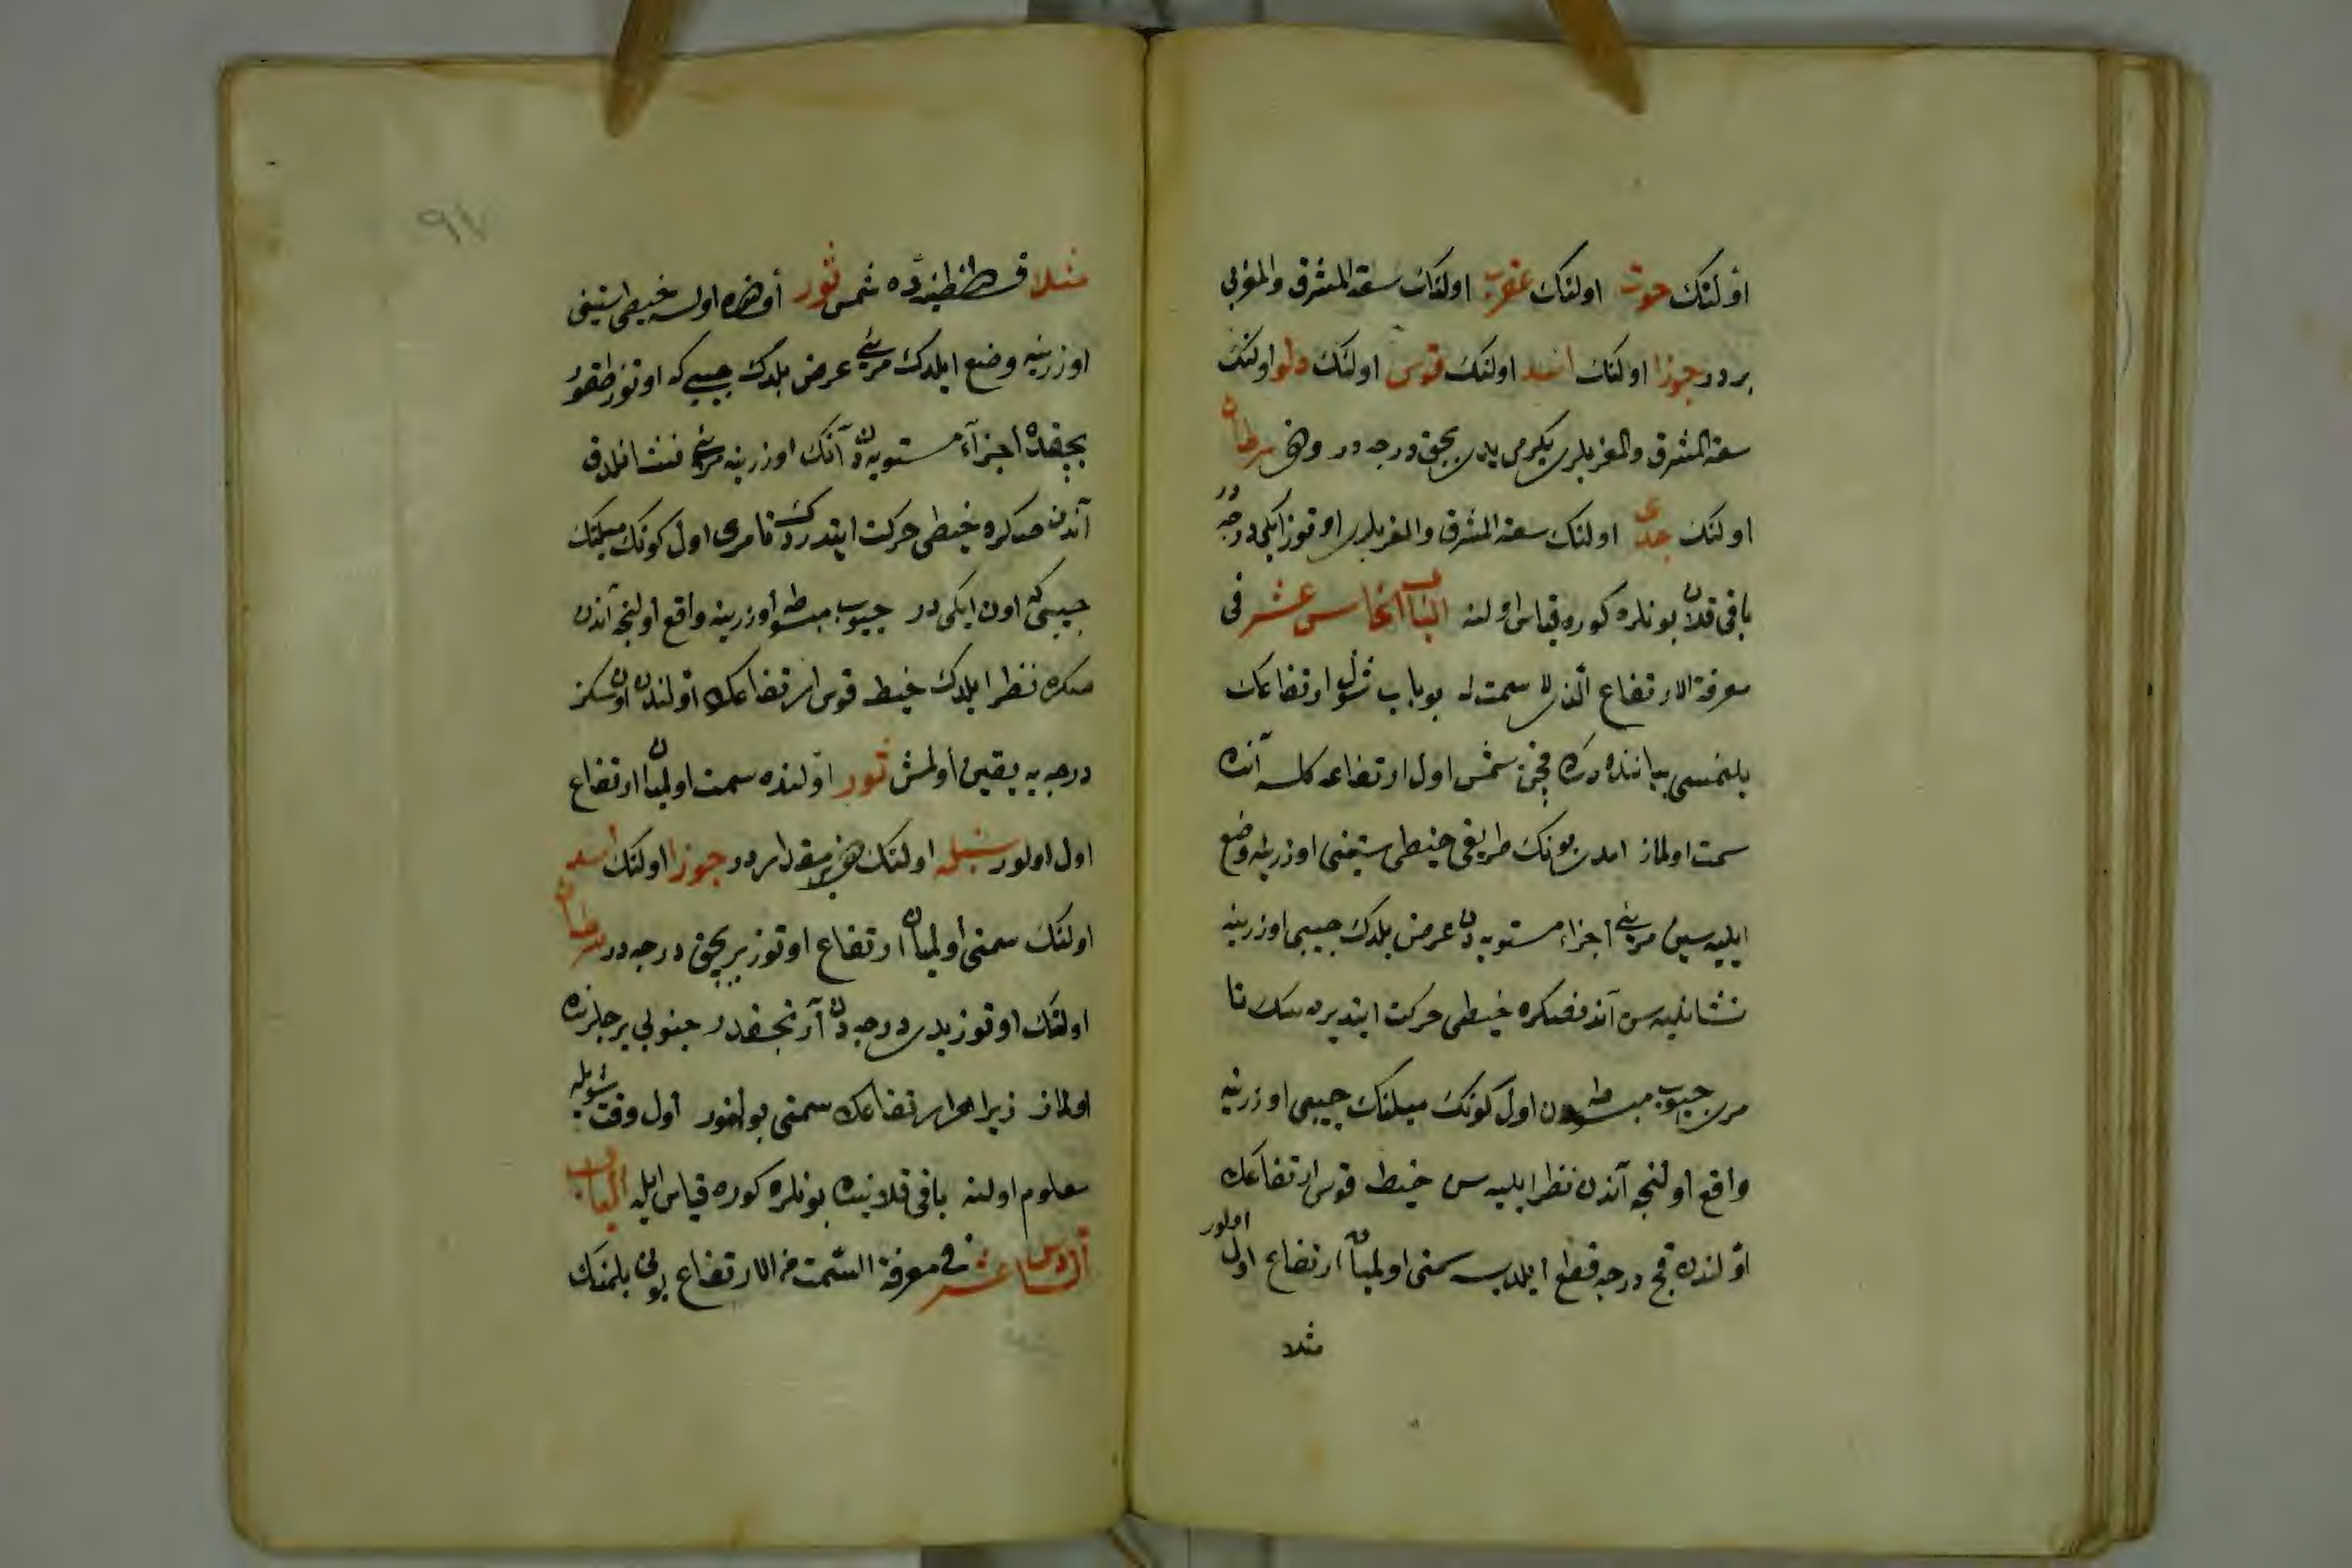 اولنك حوت اولنك عقرب اولنك سعة المشرق والمغربى
بردر جوزا اولنك اسد اولنك قوس اولنك دلو اولنك
سعة المشرق والمغربلرى يكرمى يدى بچق درجه در وفى سرطان
اولنك جدى اولنك سعة المشرق والمغربلرى اوتوز ايكى درجه در
باقى قلان بونلره كوره قياس اولنه الباب الخامس عشر فى
معرفة الارتفاع الذى لا سمت له بو باب شول ارتفاعك
بلنمسى بياننده در كه قچن شمس اول ارتفاعه كلسه آنده
سمت اولماز امدى بونك طريقى خيطى ستينى اوزرينه وضع
ايليه سين مريئ اجزاء مستويه دن عرض بلدك جيبى اوزرينه
نشانليه سن آندنصكره خيطى حركت ايتديره سك تا
مرى جيوب مبسوطه دن اول كونك ميلنك جيبى اوزرينه
واقع اولنجه آندن نظر ايليه سن خيط قوس ارتفاعك
اولندن قچ درجه قطع ايلديسه سمتى اولميان ارتفاع اول اولور
مثلا
٩٧
مثلا قسطنطنيه ده شمس ثور اولنده اولسه خيطى ستينى
اوزرينه وضع ايلدك مريئ عرض بلدك جيبى كه اوتوز طقوز
بچقدر اجزاء مستويه دن آنك اوزرينه مريئ نشانلدق
آندن صكره خيطى حركت ايتدردك تا مرى اول كونك ميلنك
جيبى كه اون ايكى در جيوب مبسوطه اوزرينه واقع اولنجه آندن
صكره نظر ايلدك خيط قوس ارتفاعك اولندن اون سكز
درجه يه يقين اولمش ثور اولنده سمت اولميان ارتفاع
اول اولور سنبله اولنك دخى بو مقداردر جوزا اولنك اسد
اولنك سمتى اولميان ارتفاع اوتوز بر بچق درجه در سرطان
اولنك اوتوز يدى درجه دن آرتجقدر جنوبى برجلرنده
اولماز زيرا هر ارتفاعك سمتى بولنور اول وقت شويله
معلوم اولنه باقى قلاننده بونلره كوره قياس ايله الباب
السادس عشر فى معرفة السمت من الارتفاع بونى بلمنك